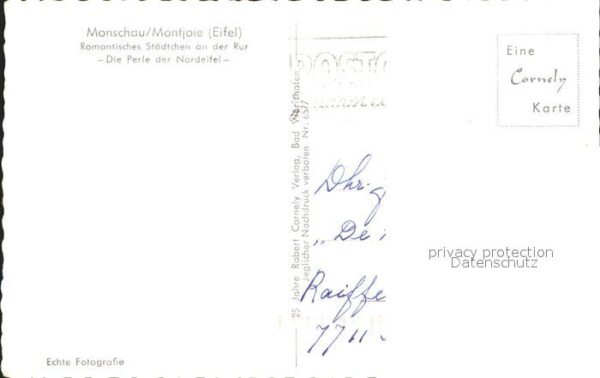 Monschau/Montjoie (Eifel)
Romantisches Städtchen an der Rur
- Die Perle der Nordeifel -
Eine
Cornely
Karte
25 Jahre Robert Cornely Verlag, Bad Wörishofen
Jeglicher Nachdruck verboten Nr. 6577
"De
Raiffe
7711
privacy protection
Datenschutz
Echte Fotografie